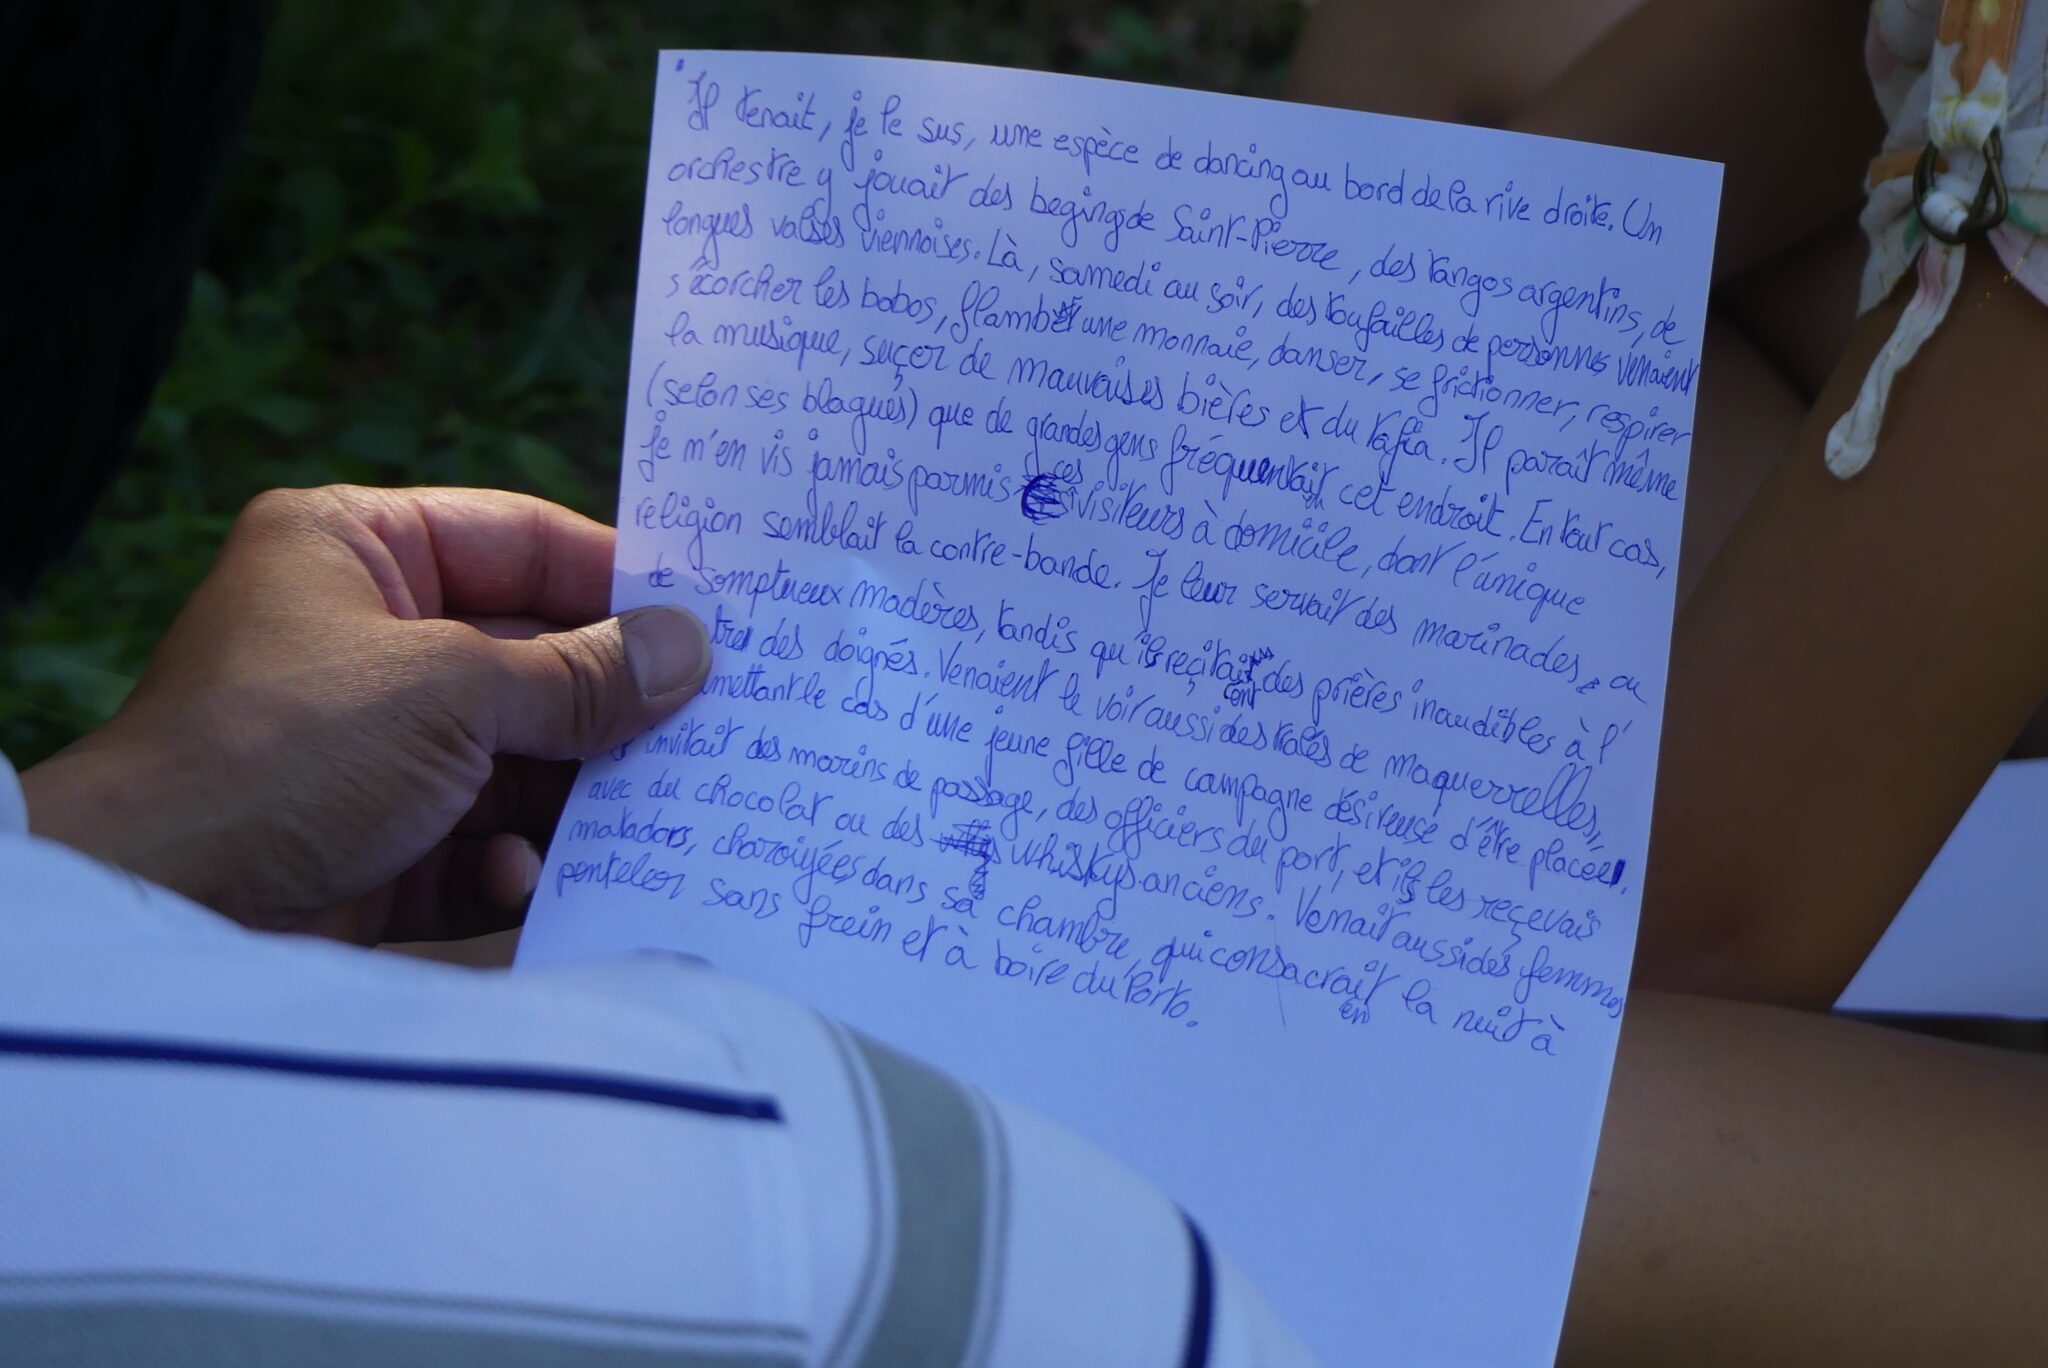 "Il tenait, je le sus, une espèce de dancing au bord de la rive droite. Un
orchestre y jouait des begings de Saint-Pierre, des tangos argentins, de
longues valses viennoises. Là, samedi au soir, des toufailles de personnes venaient
s'écorcher les bobos, flamber une monnaie, danser, se frictionner, respirer
la musique, suçer de mauvaises bières et du tafia. Il paraît même
(selon ses blagues) que de grandes gens fréquentait cet endroit. En tout cas,
je m'en vis jamais parmis ces visiteurs à domicile, dont l'unique
religion semblait la contre-bande. Je leur servait des marinades, ou
de somptueux madères, tandis qu'ils reçitaient des prières inaudibles à l'
des doignés. Venaient le voir aussi des tralés de maquerrelles,
mettant le cas d'une jeune fille de campagne désireuse d'être placée.
invitait des marins de passage, des officiers du port, et ils les reçevais
avec du chocolat ou des whiskys anciens. Venait aussi des femmes
matadors, charoiyées dans sa chambre, qui consacrait la nuit à
penteler sans frein et à boire du Porto.